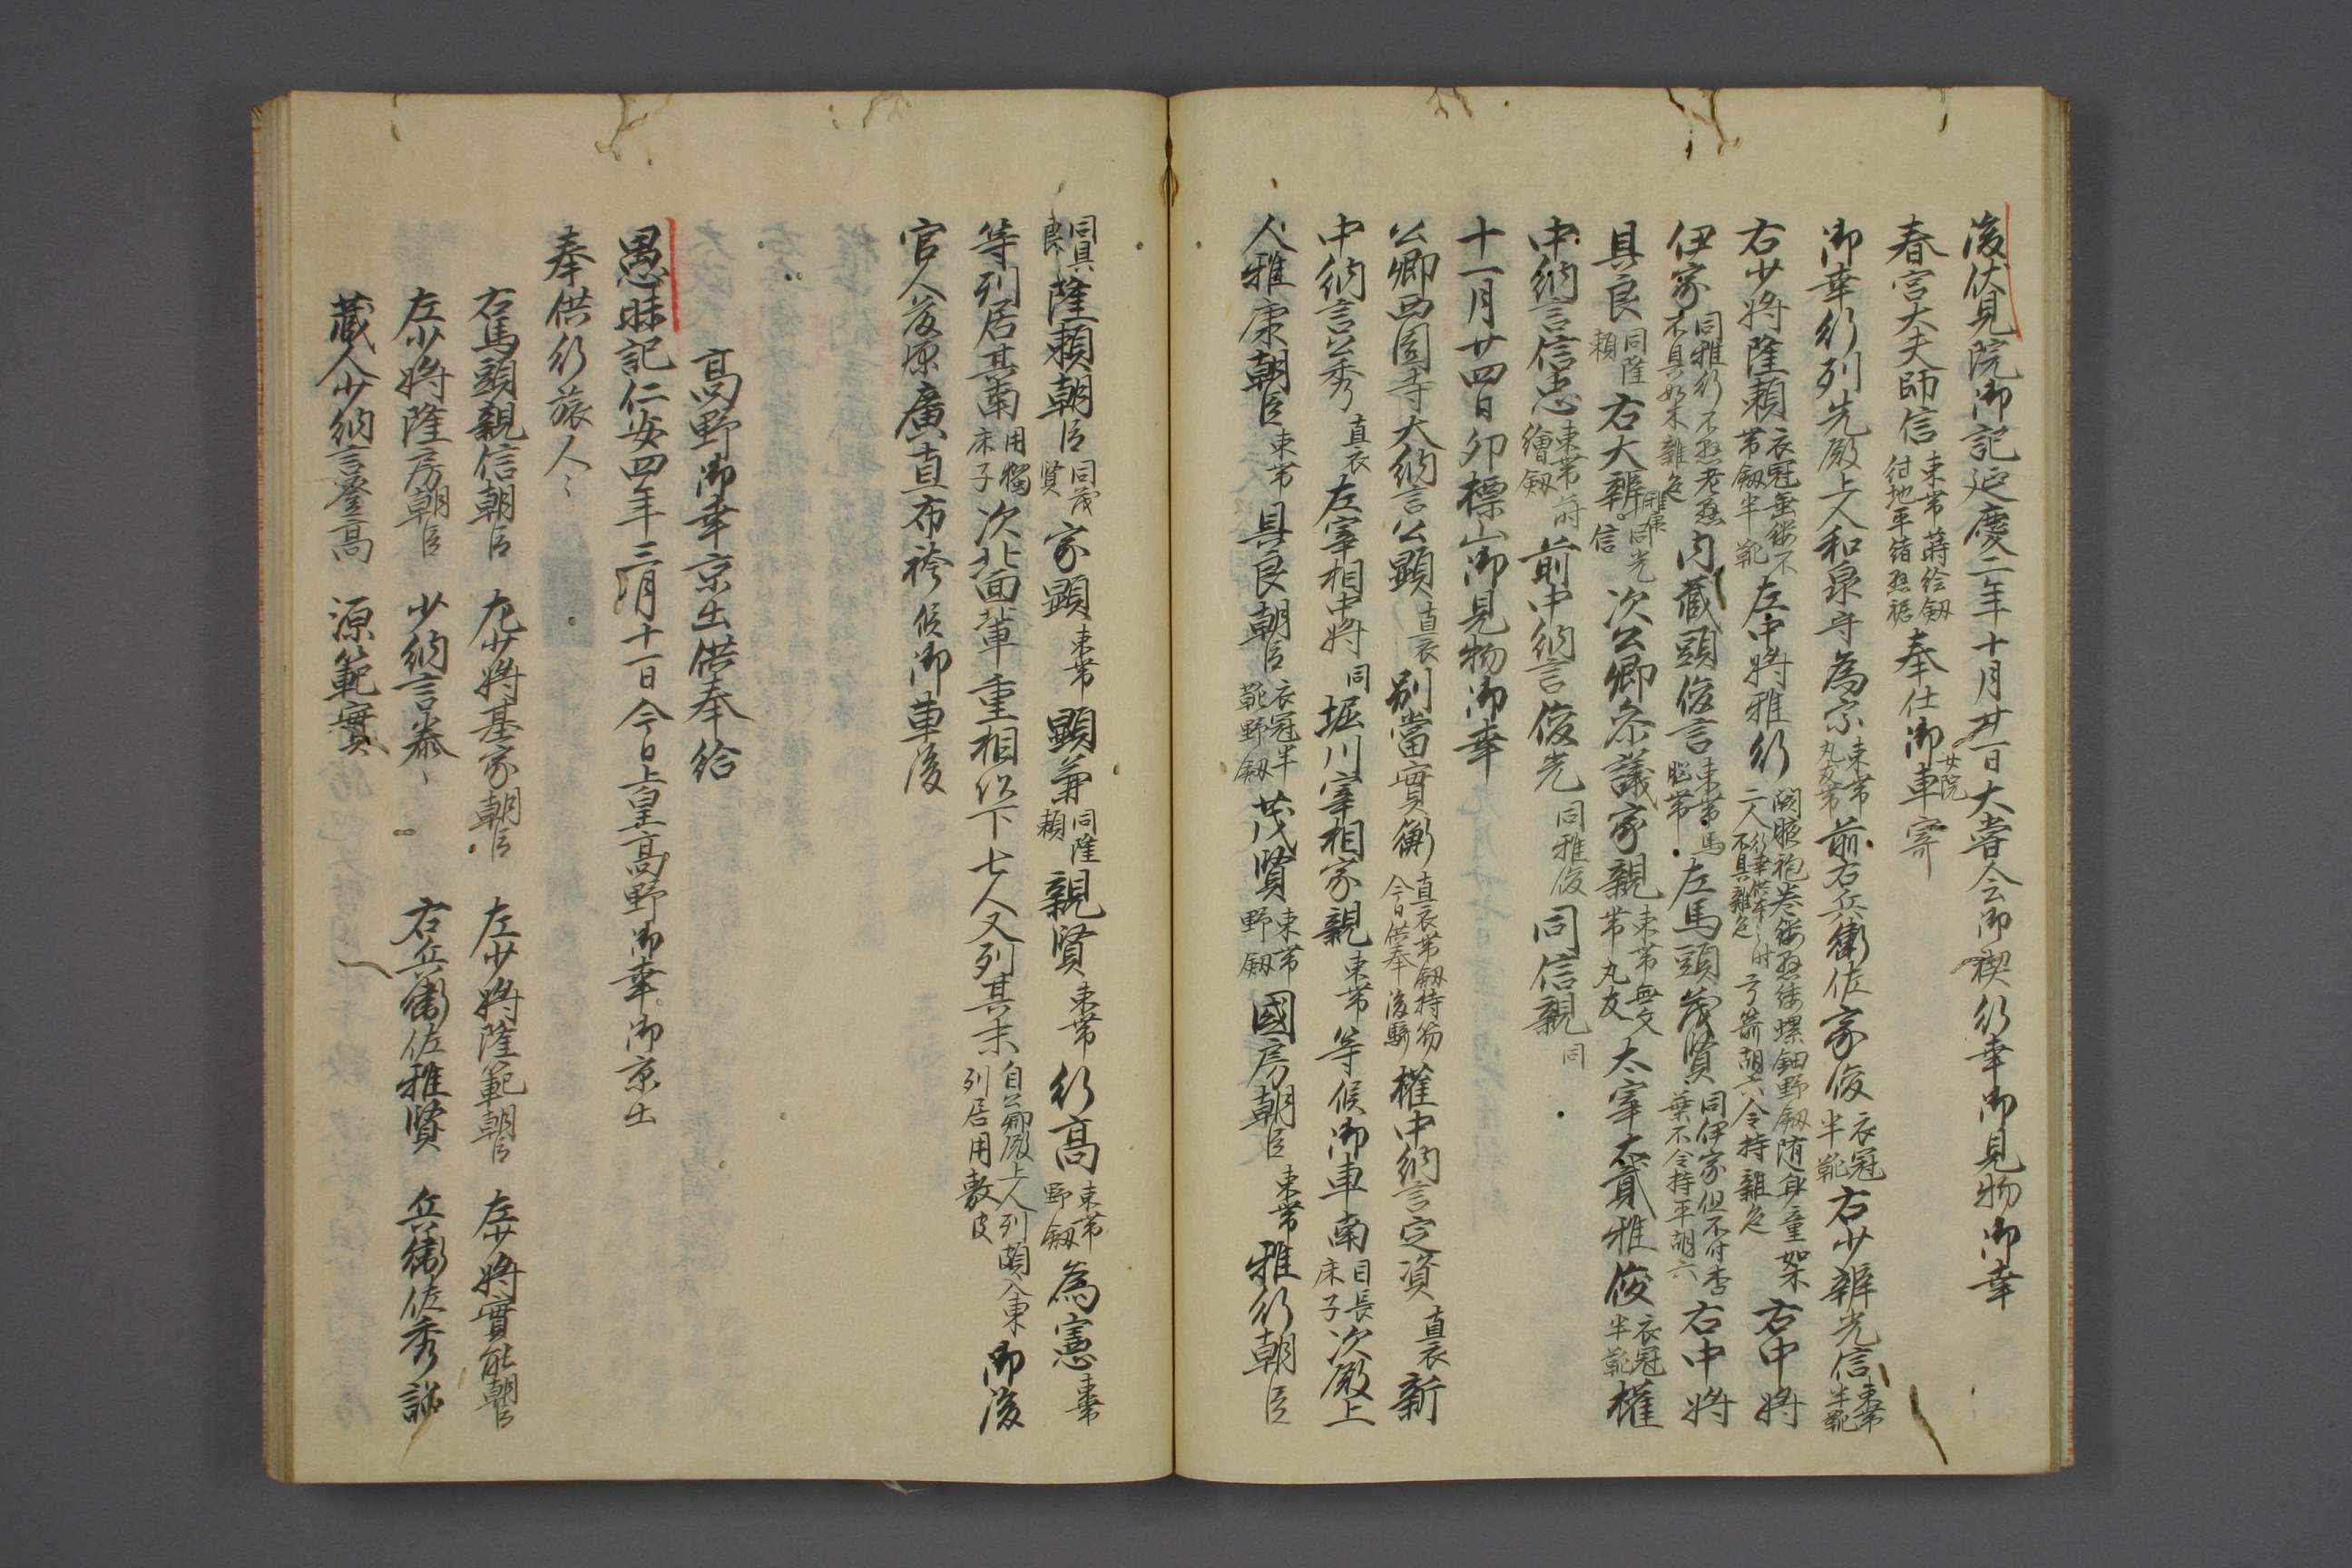 後伏見院御記延慶二年十月廿一日大嘗会御禊行幸御見物御幸
春宮大夫師信束帯蒔絵釼付地平緒懸裾奉仕御車寄女院
御幸行列先殿上人和泉守為宗束帯丸友帯前右兵衛佐家俊衣冠半靴右少辨光信束帯半靴
右少将隆頼衣冠垂緌不帯釼半靴左中将雅行闕腋袍巻緌懸緌螺鈿野釼随身童如木二人行幸供奉之時不具雑色弓箭胡六令持雑色右中将
伊家同雅行不懸老懸不具如木雑色内蔵頭俊言束帯馬脳帯左馬頭茂賢同伊家但不付杏葉不令持平胡六右中将
具良同隆頼右大辨雅康同光信次公卿参議家親束帯無文帯丸友太宰大貳雅俊衣冠半靴権
中納言信忠束帯前繪釼前中納言俊光同雅俊同信親同
十一月廿四日卯標山御見物御幸
公卿西園寺大納言公顕直衣別當實衡直衣帯釼持笏今日供奉後騎権中納言定資直衣新
中納言公秀直衣左宰相中将同堀川宰相家親束帯等候御車南目長床子次殿上
人雅康朝臣束帯具良朝臣衣冠半靴野釼茂賢束帯野釼國房朝臣束帯雅行朝臣
同具良隆頼朝臣同茂賢家顕束帯顕兼同隆頼親賢束帯行高束帯野釼為憲束帯
等列居其南用獨床子次北面輩重相以下七人又列其末自公卿殿上人列頗入東列居用敷皮御後
官人藤原廣直布袴候御車後
高野御幸京出供奉給
愚昧記仁安四年三月十一日今日上皇高野御幸御京出
奉供行旅人〻
右馬頭親信朝臣 左少将基家朝臣 左少将隆範朝臣 左少将實能朝臣
左少将隆房朝臣 少納言泰〻 右兵衛佐雅賢 兵衛佐秀詮
蔵人少納言登高 源範實